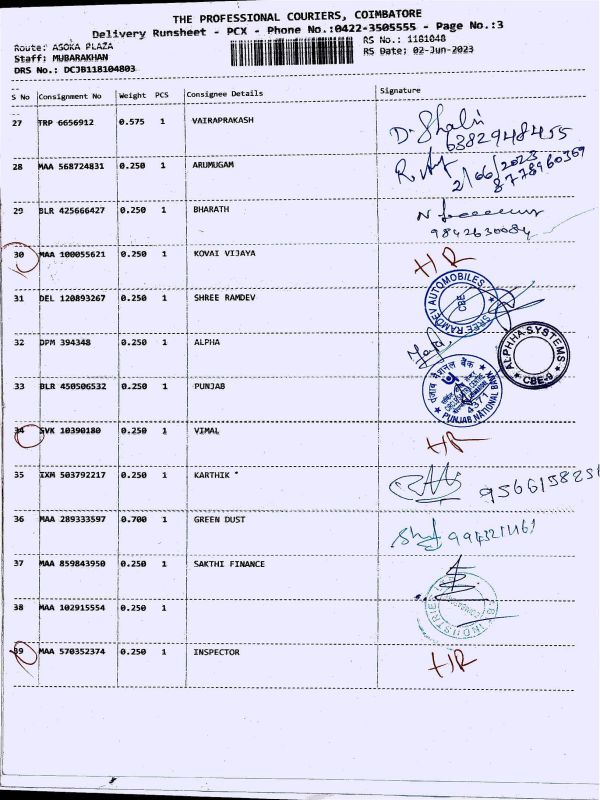 THE PROFESSIONAL COURIERS, COIMBATORE
Delivery Runsheet - PCX - Phone No.:0422-3505555 - Page No.:3
Route: ASOKA PLAZA RS No.: 1181048
Staff: MUBARAKHAN RS Date: 02-Jun-2023
DRS No.: DCJB118104803
S No Consignment No Weight PCS Consignee Details Signature
27 TRP 6656912 0.575 1 VAIRAPRAKASH
D. Shalini
6382948455
28 MAA 568724831 0.250 1 ARUMUGAM
2/06/2023
8778960369
29 BLR 425666427 0.250 1 BHARATH
9842630084
30 MAA 100055621 0.250 1 KOVAI VIJAYA HR
31 DEL 120893267 0.250 1 SHREE RAMDEV
SHREE RAMDEV AUTOMOBILES
CBE
32 DPM 394348 0.250 1 ALPHA
ALPHHA SYSTEMS
CBE-9
33 BLR 450506532 0.250 1 PUNJAB
पंजाब नैशनल बैंक
4371
PUNJAB NATIONAL BANK
34 SVK 10390180 0.250 1 VIMAL HR
35 IXM 503792217 0.250 1 KARTHIK * 9566158256
36 MAA 289333597 0.700 1 GREEN DUST
37 MAA 859843950 0.250 1 SAKTHI FINANCE
38 MAA 102915554 0.250 1
INDUSTRIES
39 MAA 570352374 0.250 1 INSPECTOR HR